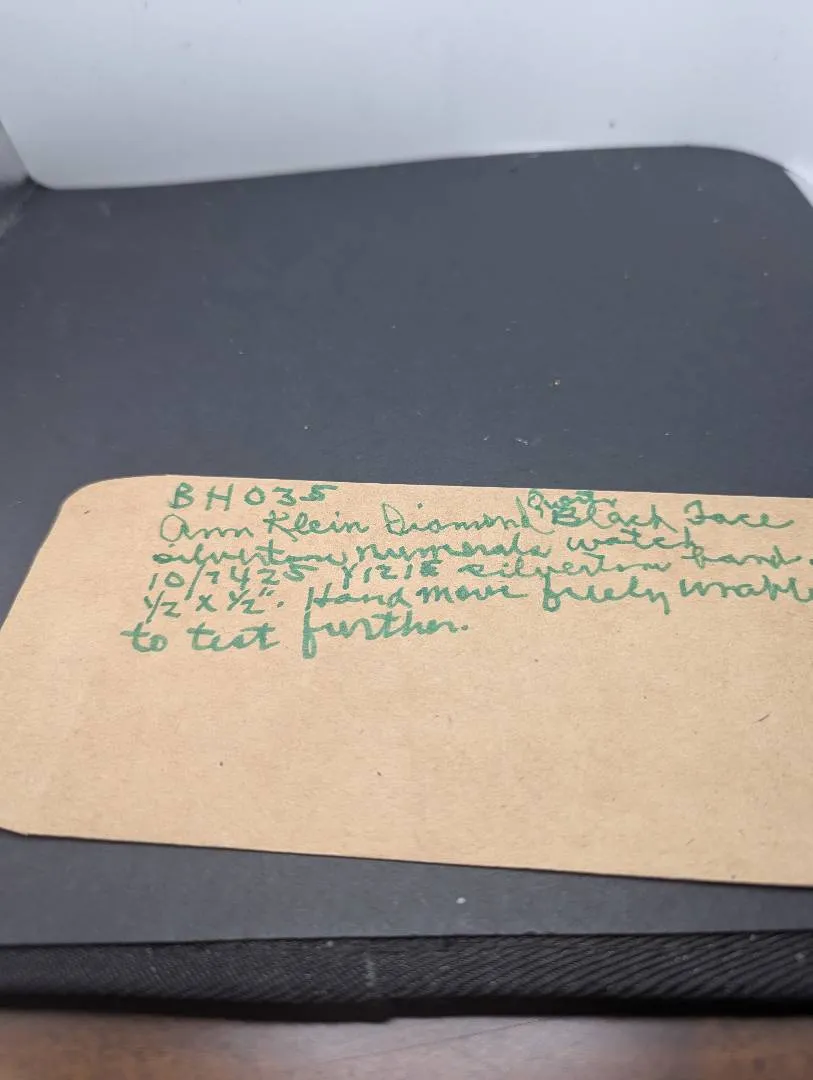 BH035
Quartz
Ann Klein Diamond Black Face
silvertone numerals watch
10/7425 Y121E silvertone band.
1/2 x 1/2". Hand move freely unable
to test further.